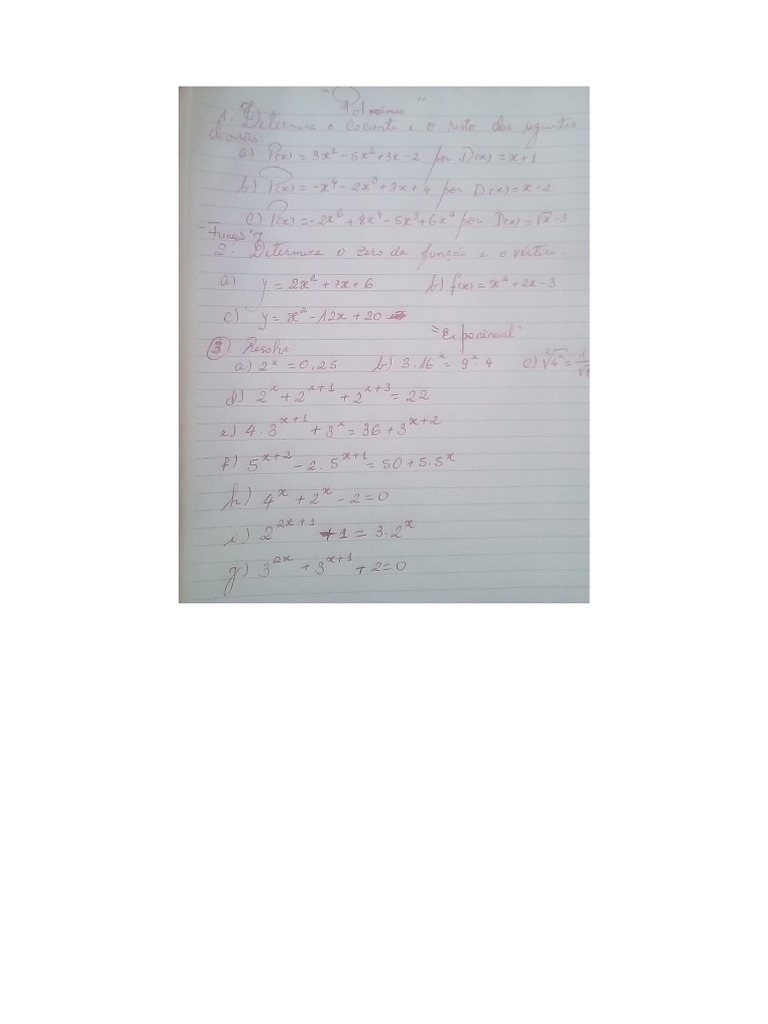 "Polinómio"
1. Determine o Cociente e o resto das seguintes
divisões:
a) P(x) = 3x² - 5x² + 3x - 2 por D(x) = x + 1
b) P(x) = -x⁴ - 2x³ + 3x + 4 por D(x) = x - 2
c) P(x) = -2x⁶ + 8x⁴ - 5x³ + 6x² por D(x) = √x - 3
2. Determine o zero da função e o vértice.
a) y = 2x² + 7x + 6 b) f(x) = x² + 2x - 3
c) y = x² - 12x + 20
"Exponêncial"
3). Resolve
a) 2^x = 0,25 b) 3.16^x = 9^x. 4 c)
d) 2^x + 2^(x+1) + 2^(x+3) = 22
e) 4.3^(x+1) + 3^x = 36 + 3^(x+2)
f) 5^(x+2) - 2.5^(x+1) = 50 + 5.5^x
h) 4^x + 2^x - 2 = 0
i) 2^(2x+1) + 1 = 3.2^x
g) 3^(2x) + 3^(x+1) + 2 = 0